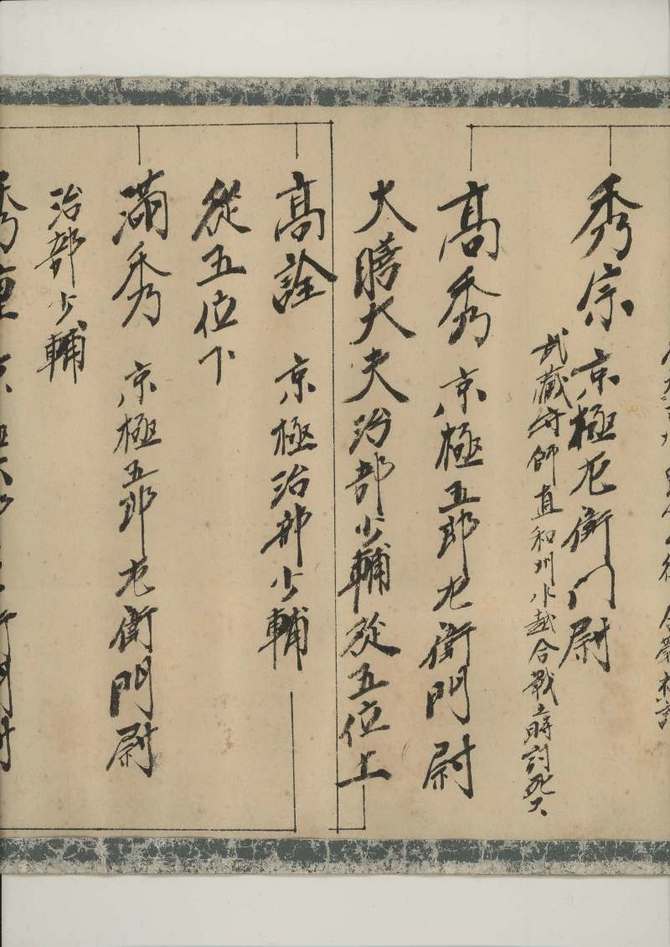 秀宗 京極左衛門尉
武蔵守師直和州水越合戦之時討死ス
高秀 京極五郎左衛門尉
大膳大夫治部少輔従五位上
高詮 京極治部少輔
従五位下
満秀 京極五郎左衛門尉
治部少輔